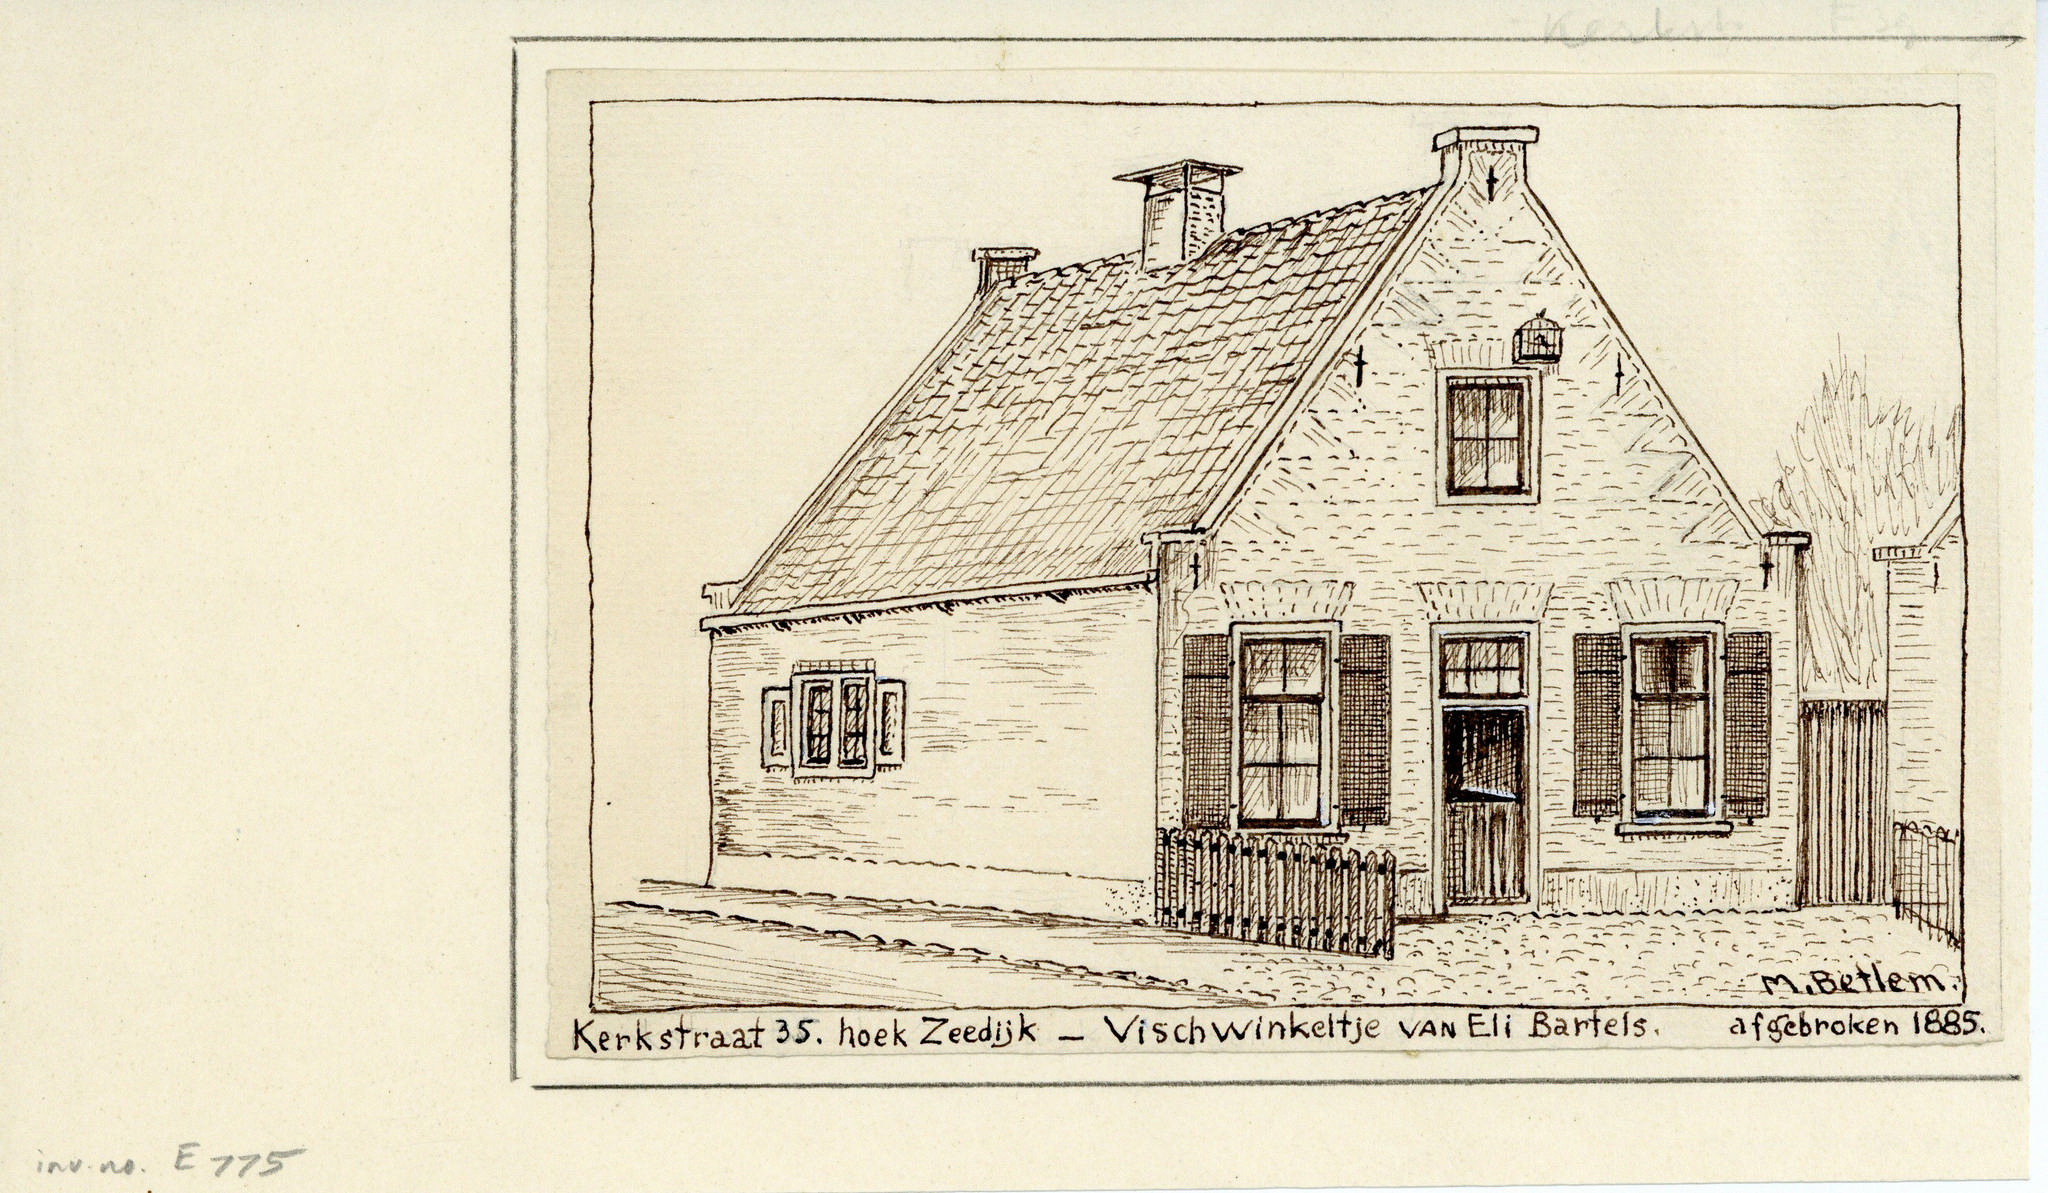 Kerkst.
M. Betlem.
Kerkstraat 35. hoek Zeedijk – Vischwinkeltje van Eli Bartels. afgebroken 1885.
inv. no. E 775